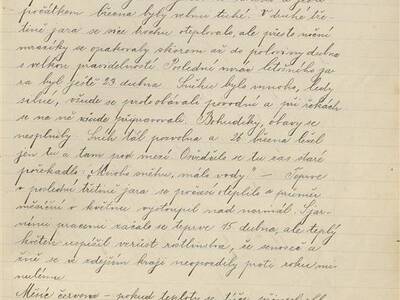 počátkem března byly velmi tiché. V druhé tře-
tině jara se více trochu oteplovalo, ale přesto noční
mrazíky se opakovaly skorem až do poloviny dubna
s velkou pravidelností. Poslední mráz letošního ja-
ra byl ještě 23. dubna. Sněhu bylo mnoho, ledy
silné, všude se proto obávali povodní a při řekách
se na ně všude připravovali. Bohudíky, obavy se
nesplnily. Sníh tál pozvolna a 26 března ležel
jen tu a tam pod mezí. Osvědčilo se tu zas staré
pořekadlo: „Mnoho sněhu, málo vody." – Teprve
v poslední třetině jara se počasí oteplilo a průměr
měsíční v květnu vystoupil nad normál. S jar-
ními pracemi začalo se teprve 15 dubna, ale teplý
květen uspíšil vzrůst rostlinstva, že senoseč a
žně se v zdejším kraji neopozdily proti roku mi-
nulému.
Měsíc červen – pokud teploty se týče